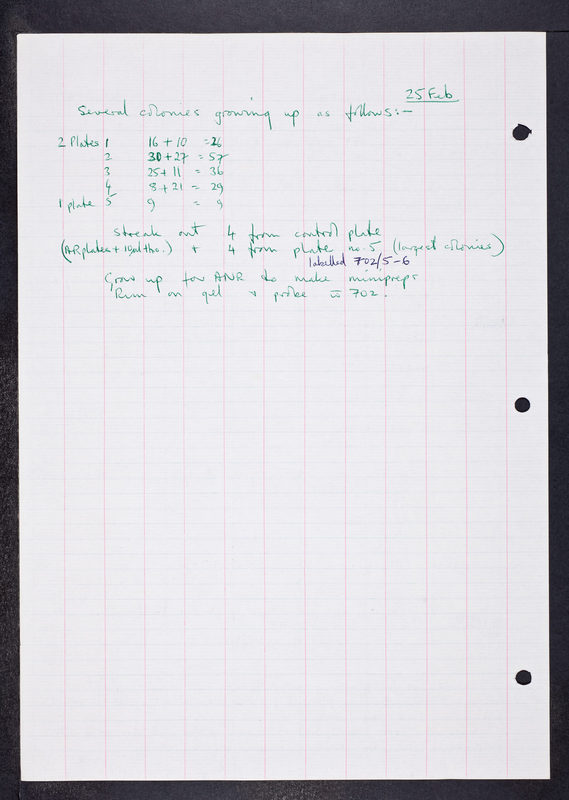 25 Feb
Several colonies growing up as follows:-
2 Plates 1 16 + 10 = 26
2 30 + 27 = 57
3 25 + 11 = 36
4 8 + 21 = 29
1 plate 5 9 = 9
Streak out 4 from control plate
(AR plates + + 4 from plate no. 5 (largest colonies)
labelled 702/5-6
Grow up for ANR to make minipreps
Run on gel + probe w̄ 702.